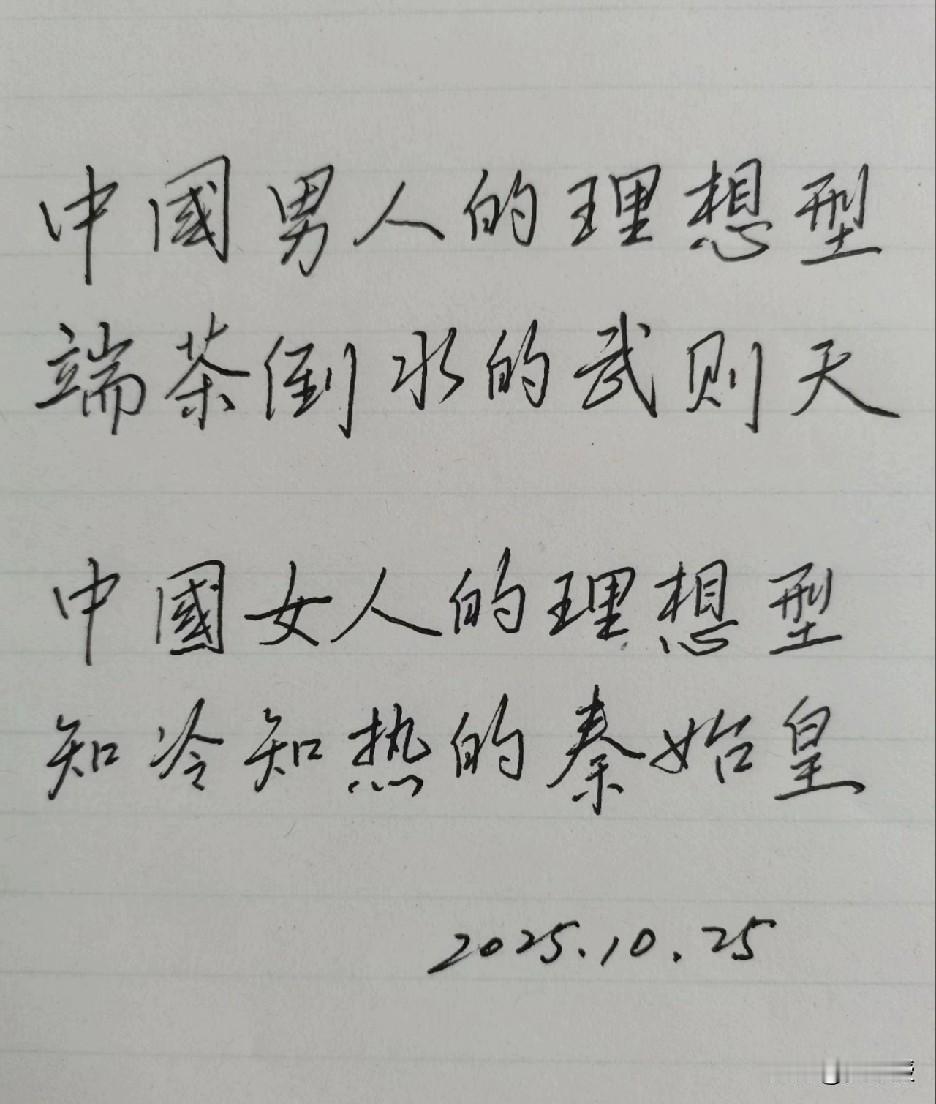 中國男人的理想型
端茶倒水的武则天
中國女人的理想型
知冷知热的秦始皇
2025.10.25